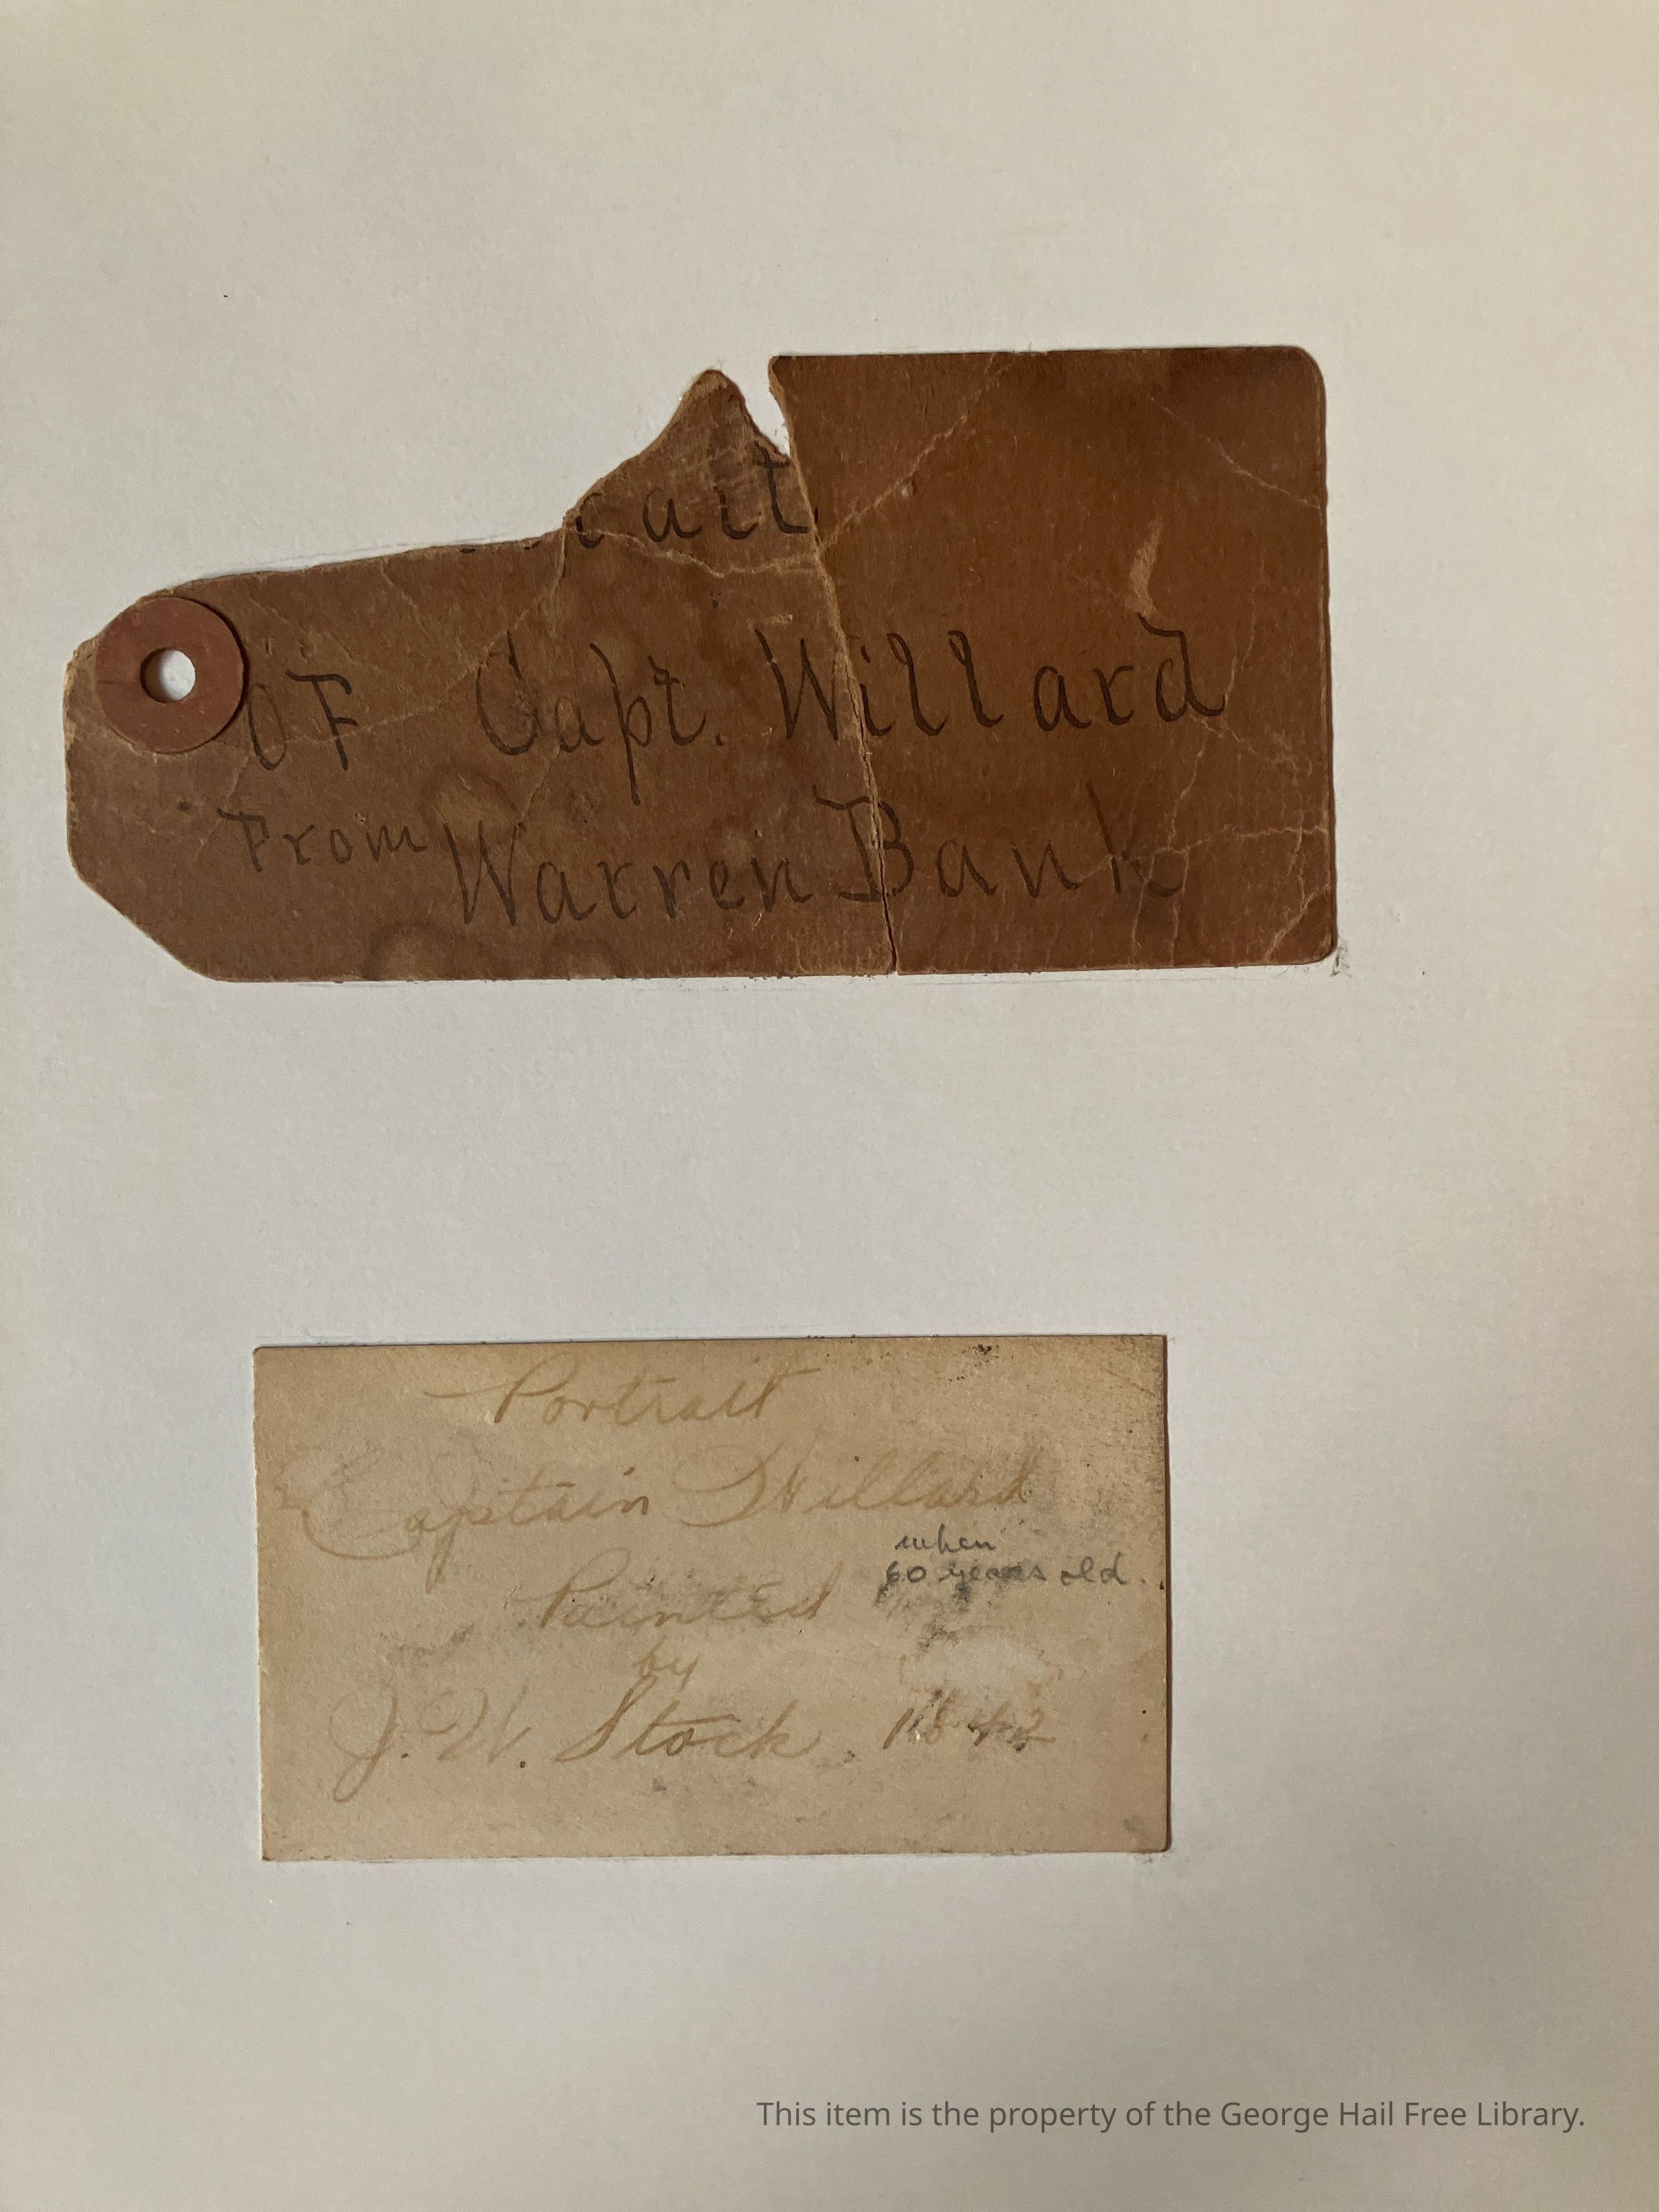 rait
OF Capt. Willard
From Warren Bank
Portrait
Captain Willard
when
60 years old.
Painted
by
J. W. Stock. 1842
This item is the property of the George Hail Free Library.